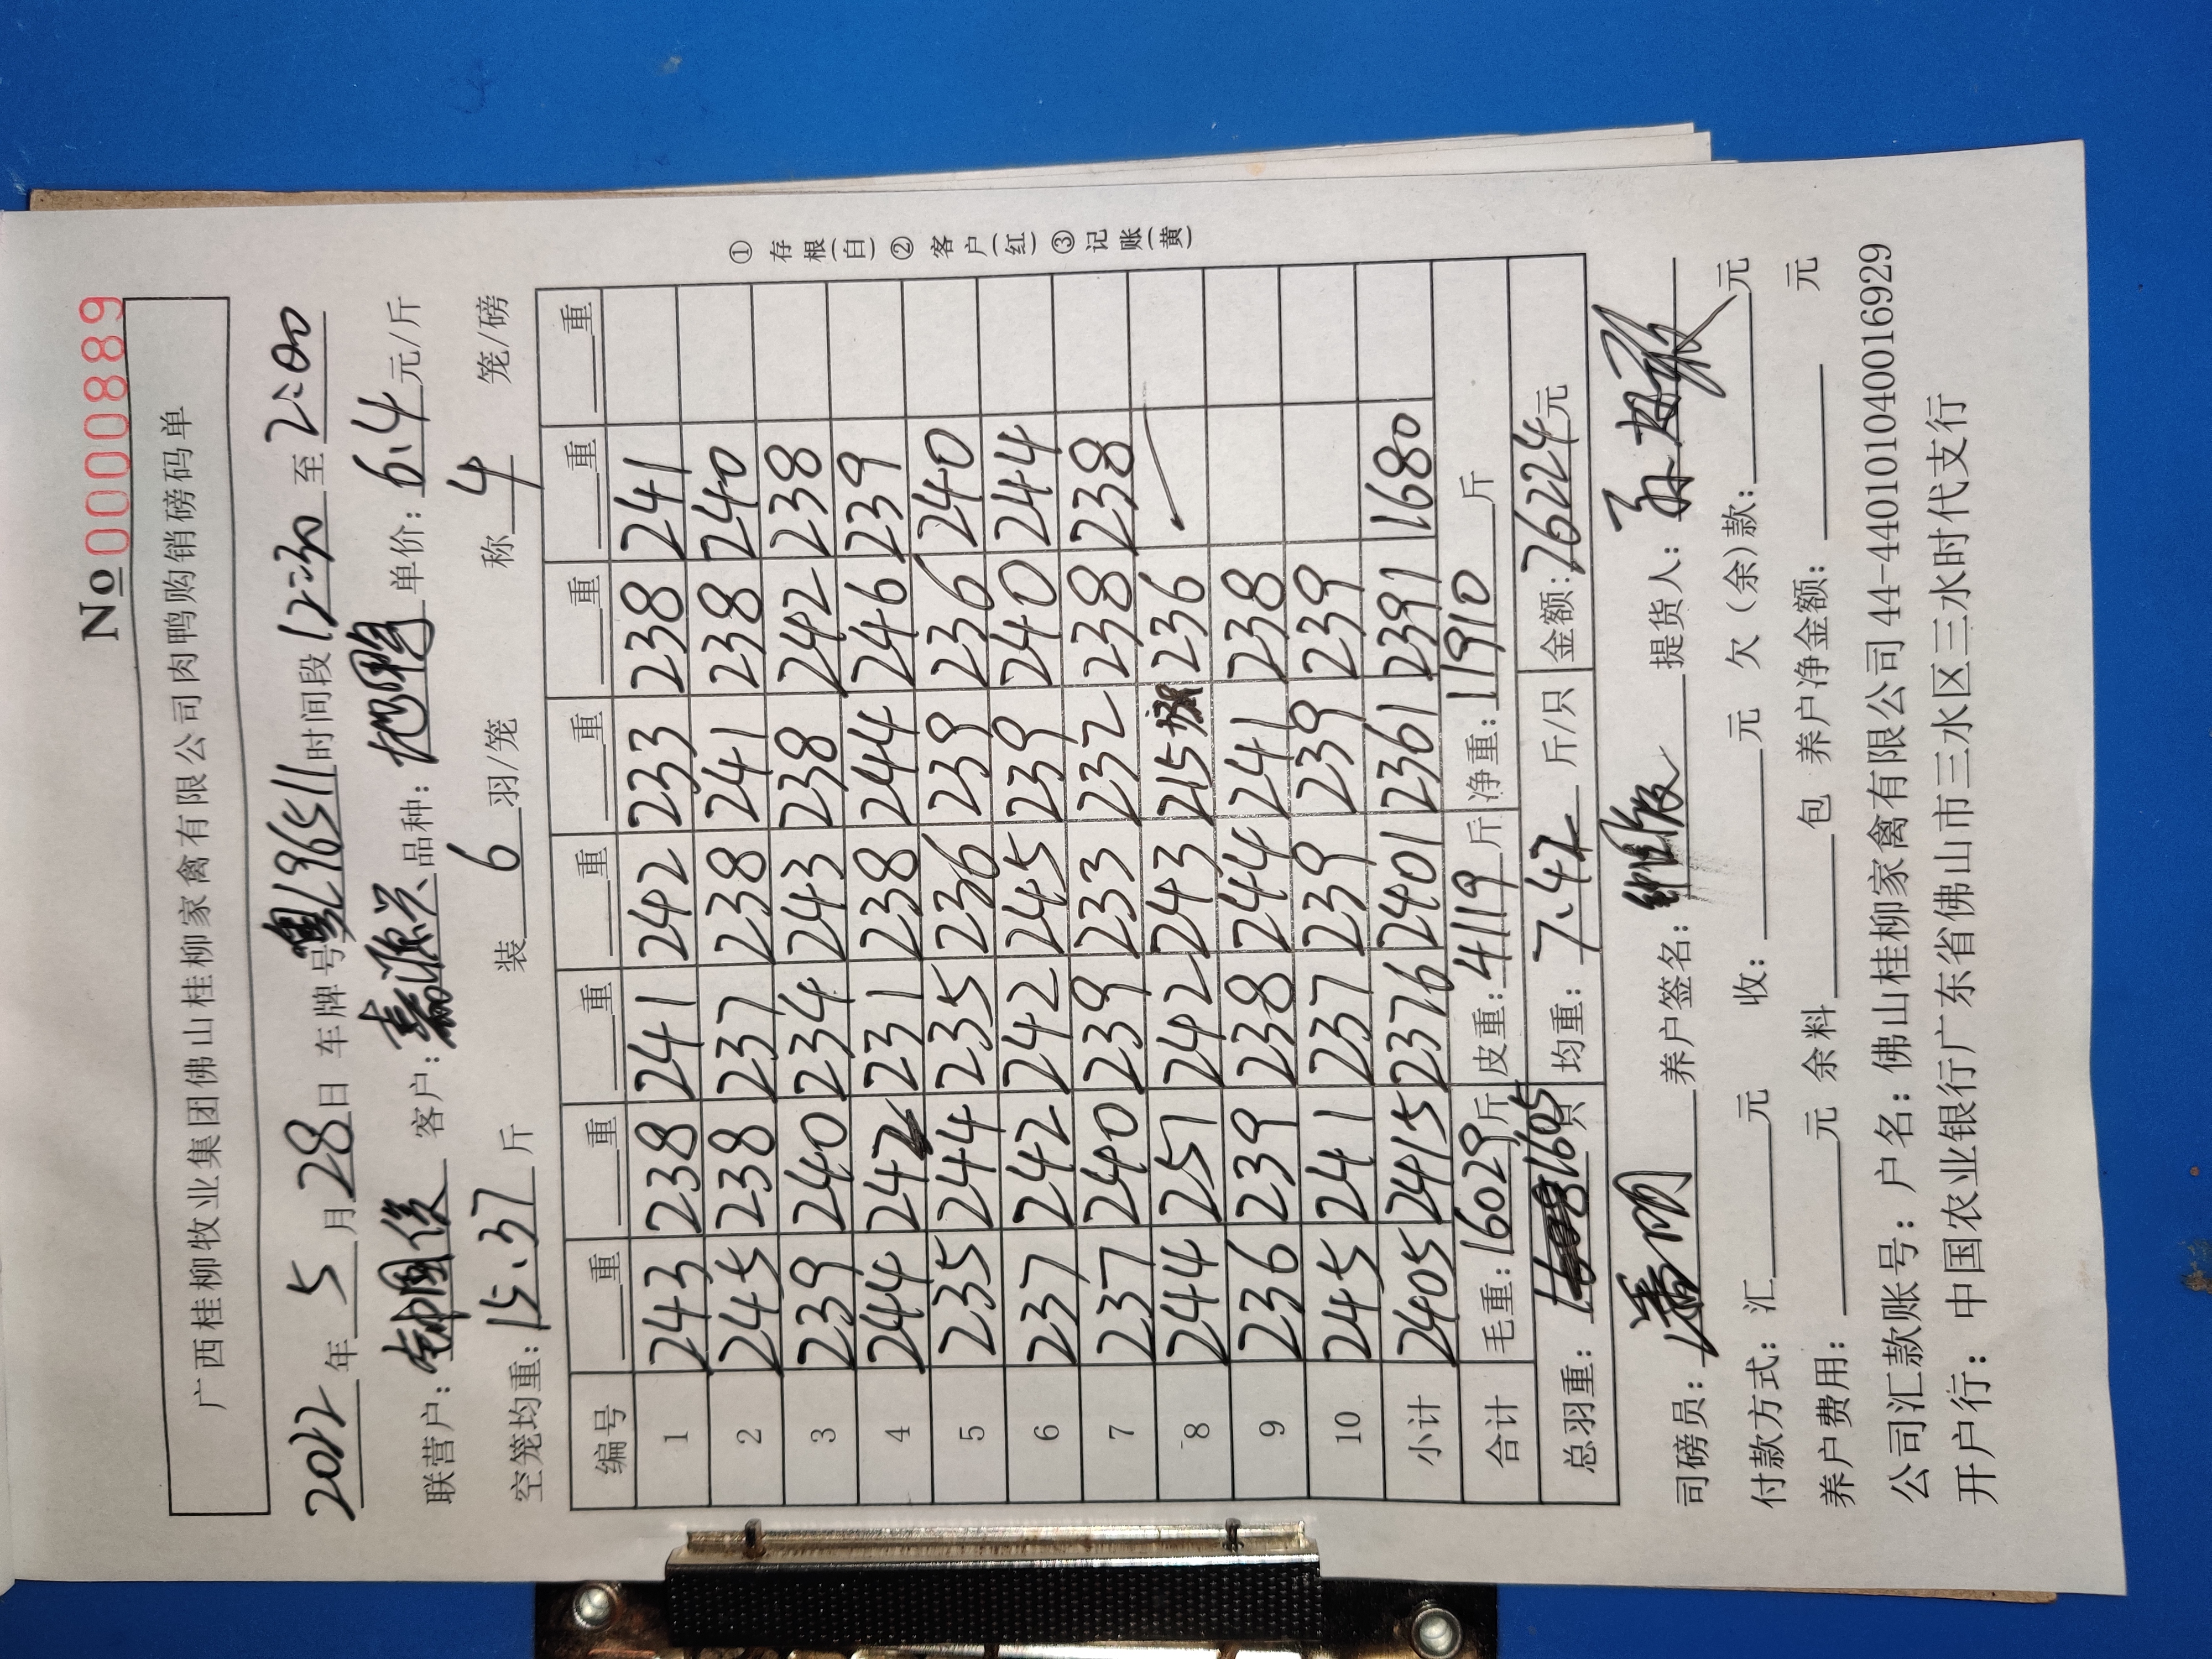 No 0000889
广西桂柳牧业集团佛山桂柳家禽有限公司肉鸭购销磅码单
2022年5月28日 车牌号粤L96511时间段12:30至2:00
联营户:钟国俊 客户:嘉源兴 品种: 单价:6.4元/斤
空笼均重:15.37斤 装6羽/笼 称4笼/磅
编号 重 重 重 重 重 重 重 重
1 243 238 241 242 233 238 241
2 245 238 237 238 241 238 240
3 239 240 234 243 238 242 238
4 244 242 231 238 244 246 239
5 235 244 235 236 239 236 240
6 237 242 242 245 239 240 244
7 237 240 239 233 232 238 238
8 244 251 242 243 215 236
9 236 239 238 244 241 238
10 245 241 237 239 239 239
小计 2405 2415 2376 2401 2361 2391 1680
合计 毛重:16029斤 皮重:4119斤 净重:11910斤
总羽重:1605只 均重:7.42斤/只 金额:76224元
①存根(白)②客户(红)③记账(黄)
司磅员: 养户签名: 提货人:
付款方式:汇 元 收: 元 欠(余)款: 元
养户费用: 元 余料 包 养户净金额: 元
公司汇款账号:户名:佛山桂柳家禽有限公司 44-440101040016929
开户行:中国农业银行广东省佛山市三水区三水时代支行